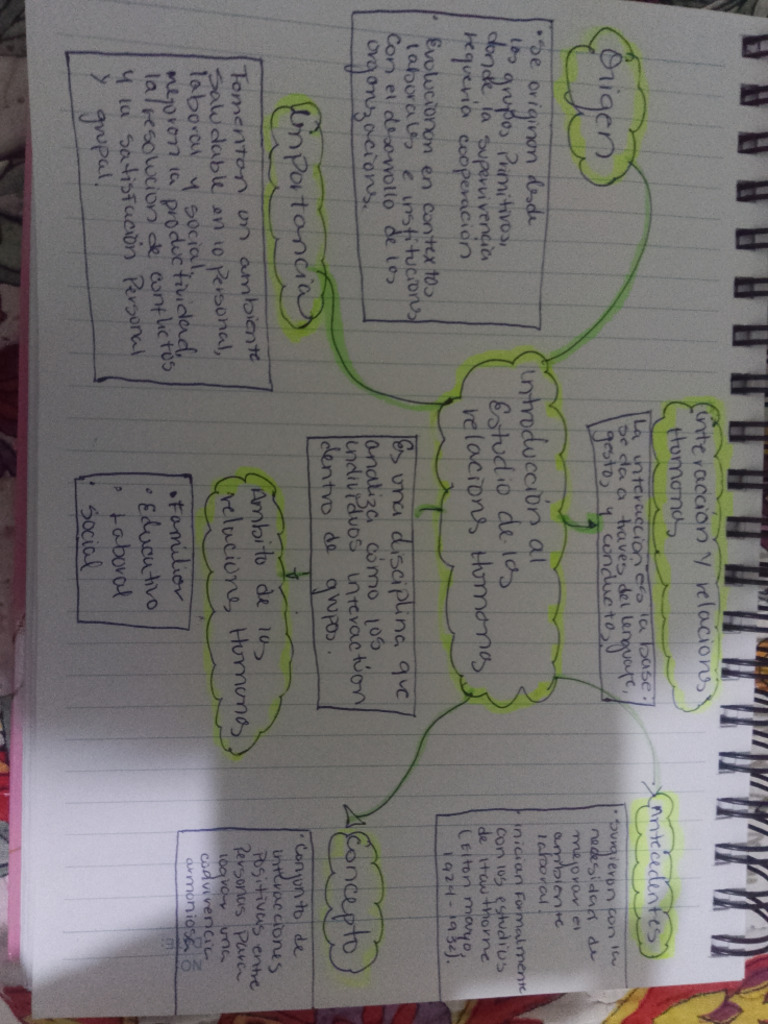 Origen
• Se originan desde
los grupos Primitivos,
donde la supervivencia
requeria cooperación
• Evolucionan en contextos
laborales e institucions
con el desarrollo de las
organizacions.
Importancia
Fomentan un ambiente
Saludable en lo Personal,
laboral y social,
mejoran la productividad,
la resolucion de conflictos
y la satisfacción Personal
y grupal.
interacción Y relacions
Humanas
La interacción es la base:
se da a través del lenguaje,
gestos, y conductas,
introducción al
Estudio de las
relacions Humanas
Es una disciplina que
analiza como los
individuos interactúan
dentro de grupos.
Ambito de las
relacions Humanas
• Familiar
• Educativo
• Laboral
• social
Antecedentes
• Surgieron con la
necesidad de
mejorar el
ambiente
laboral.
• inician formalmente
con los estudios
de Hawthorne
(Elton mayo,
1924-1932).
Concepto
• Conjunto de
interacciones
Positivas entre
Personas Para
lograr una
convivencia
armoniosa